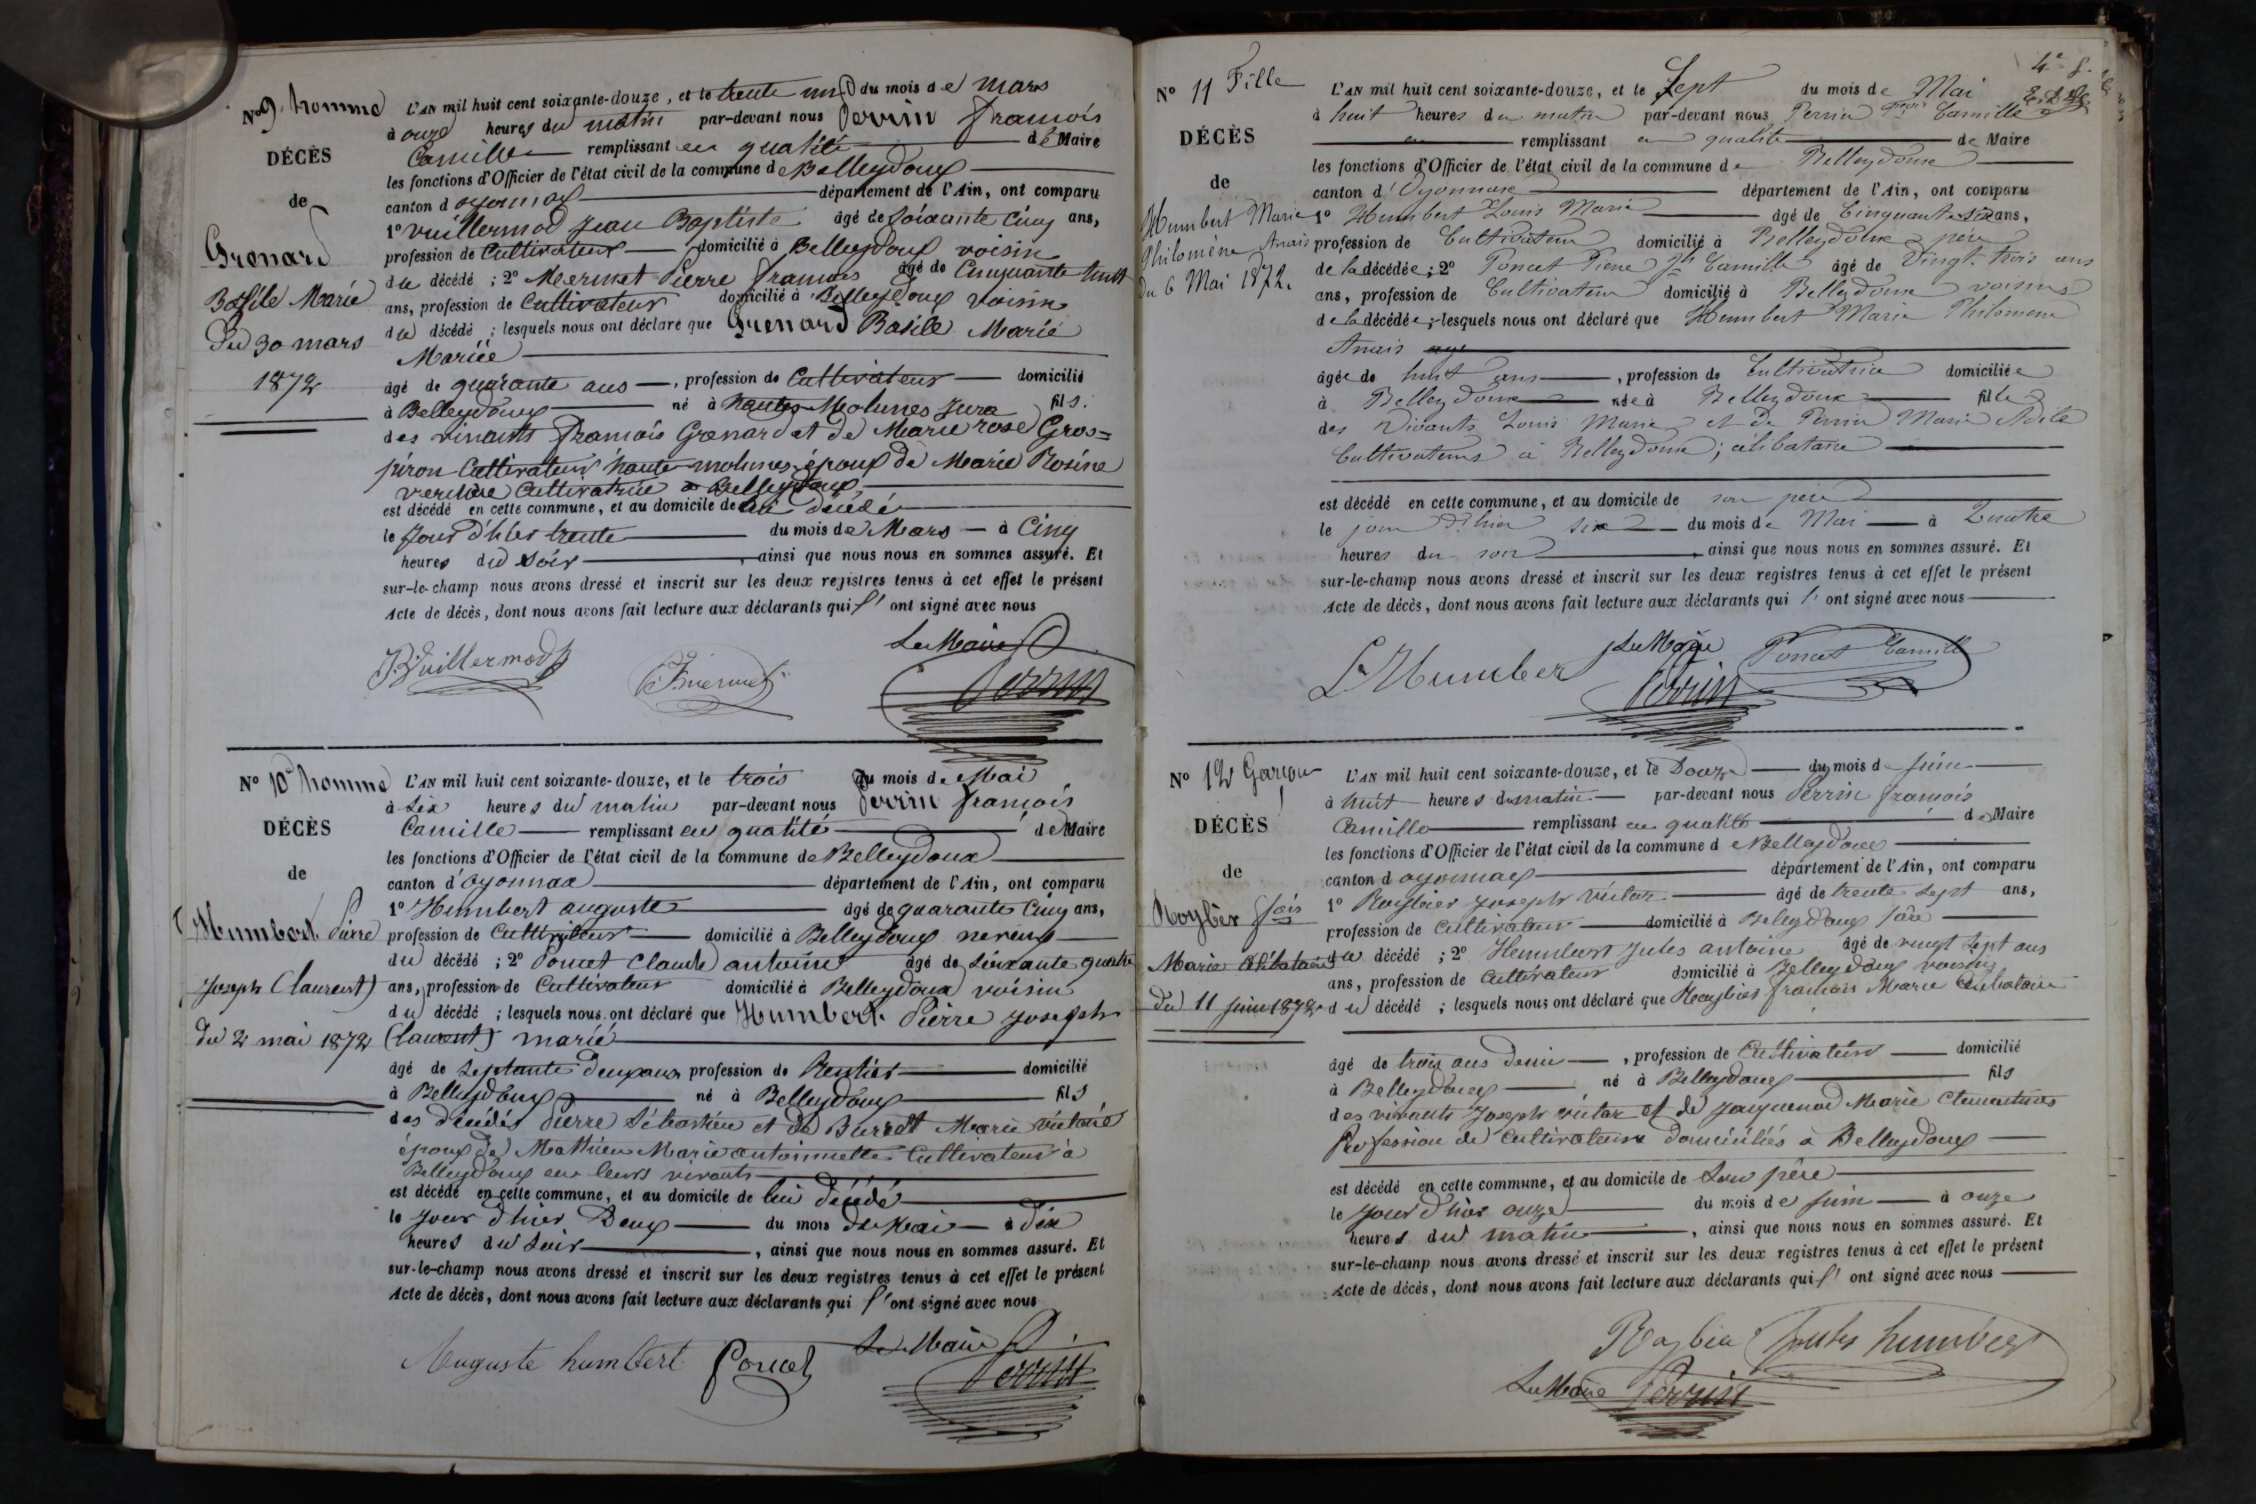 N° 9. homme
DÉCÈS
de
Grenard
Basile Marie
du 30 mars
1872
L'AN mil huit cent soixante-douze, et le trente un du mois de Mars
à onze heures du matin par-devant nous Perrin François
Camille remplissant en qualité de Maire
les fonctions d'Officier de l'état civil de la commune de Belleydoux
canton d'oyonnax département de l'Ain, ont comparu
1° Vuillermod Jean Baptiste âgé de Soixante Cinq ans,
profession de Cultivateur domicilié à Belleydoux voisin
du décédé ; 2° Mermet Pierre François âgé de Cinquante huit
ans, profession de Cultivateur domicilié à Belleydoux voisin
du décédé ; lesquels nous ont déclaré que Grenard Basile Marie
Mariée
âgé de quarante ans, profession de Cultivateur domicilié
à Belleydoux né à hautes Molunes Jura fils.
des vivants François Grenard et de Marie rose Gros=
piron Cultivateur haute molunes, époux de Marie Rosine
Cultivatrice à Belleydoux,
est décédé en cette commune, et au domicile de lui décédé
le Jour d'hier trente du mois de Mars à Cinq
heures du Soir, ainsi que nous nous en sommes assuré. Et
sur-le-champ nous avons dressé et inscrit sur les deux registres tenus à cet effet le présent
Acte de décès, dont nous avons fait lecture aux déclarants qui l' ont signé avec nous
Le Maire
JBVuillermod Perrin
N° 10 homme
DÉCÈS
de
Humbert Pierre
Joseph (laurent)
du 2 mai 1872
L'AN mil huit cent soixante-douze, et le trois du mois de Mai
à six heures du matin par-devant nous Perrin François
Camille remplissant en qualité de Maire
les fonctions d'Officier de l'état civil de la commune de Belleydoux
canton d'oyonnax département de l'Ain, ont comparu
1° Humbert auguste âgé de quarante Cinq ans,
profession de Cultivateur domicilié à Belleydoux neveux
du décédé ; 2° Poncet Claude antoine âgé de soixante quatre
ans, profession de Cultivateur domicilié à Belleydoux voisin
du décédé ; lesquels nous ont déclaré que Humbert Pierre Joseph
(laurent) marié
âgé de septante deux ans profession de Rentier domicilié
à Belleydoux né à Belleydoux fils
des décédés Pierre Sébastien et de Burdet Marie victoire
époux de Mathieu Marie antoinette Cultivateur à
Belleydoux en leurs vivants
est décédé en cette commune, et au domicile de lui décédé
le Jour d'hier Deux du mois de Mai à dix
heures du Soir, ainsi que nous nous en sommes assuré. Et
sur-le-champ nous avons dressé et inscrit sur les deux registres tenus à cet effet le présent
Acte de décès, dont nous avons fait lecture aux déclarants qui l' ont signé avec nous
Le Maire
Auguste humbert Poncet Perrin
4e f.
N° 11 Fille
DÉCÈS
de
Humbert Marie
Philomène Anais
du 6 Mai 1872.
L'AN mil huit cent soixante-douze, et le Sept du mois de Mai
à huit heures du matin par-devant nous Perrin Fçois Camille
remplissant en qualité de Maire
les fonctions d'Officier de l'état civil de la commune de Belleydoux
canton d'Oyonnax département de l'Ain, ont comparu
1° Humbert Louis Marie âgé de Cinquante six ans,
profession de Cultivateur domicilié à Belleydoux père
de la décédée ; 2° Poncet Pierre Jh Camille âgé de Vingt trois ans
ans, profession de Cultivateur domicilié à Belleydoux voisins
de la décédée ; lesquels nous ont déclaré que Humbert Marie Philomène
Anais
âgée de huit ans, profession de Cultivatrice domiciliée
à Belleydoux née à Belleydoux fille
des Vivants Louis Marie et de Perrin Marie Adèle
Cultivateurs à Belleydoux ; célibataire
est décédé en cette commune, et au domicile de son père
le jour d'hier six du mois de Mai à Quatre
heures du soir, ainsi que nous nous en sommes assuré. Et
sur-le-champ nous avons dressé et inscrit sur les deux registres tenus à cet effet le présent
Acte de décès, dont nous avons fait lecture aux déclarants qui l' ont signé avec nous
L Humbert Le Maire Poncet Camille
Perrin
N° 12 Garçon
DÉCÈS
de
Roybier fçois
Marie Célibataire
du 11 juin 1872
L'AN mil huit cent soixante-douze, et le Douze du mois de Juin
à huit heures du matin par-devant nous Perrin François
Camille remplissant en qualité de Maire
les fonctions d'Officier de l'état civil de la commune de Belleydoux
canton d'oyonnax département de l'Ain, ont comparu
1° Roybier Joseph victor âgé de trente sept ans,
profession de Cultivateur domicilié à Belleydoux père
du décédé ; 2° Humbert Jules antoine âgé de vingt sept ans
ans, profession de Cultivateur domicilié à Belleydoux voisin
du décédé ; lesquels nous ont déclaré que Roybier François Marie Célibataire
âgé de trois ans demi, profession de Cultivateur domicilié
à Belleydoux né à Belleydoux fils
des vivants Joseph victor et de Jacquenod Marie Clémentine
Profession de Cultivateurs domiciliés à Belleydoux
est décédé en cette commune, et au domicile de Son père
le Jour d'hier onze du mois de Juin à onze
heures du matin, ainsi que nous nous en sommes assuré. Et
sur-le-champ nous avons dressé et inscrit sur les deux registres tenus à cet effet le présent
Acte de décès, dont nous avons fait lecture aux déclarants qui l' ont signé avec nous
Roybier Jules humbert
Le Maire Perrin